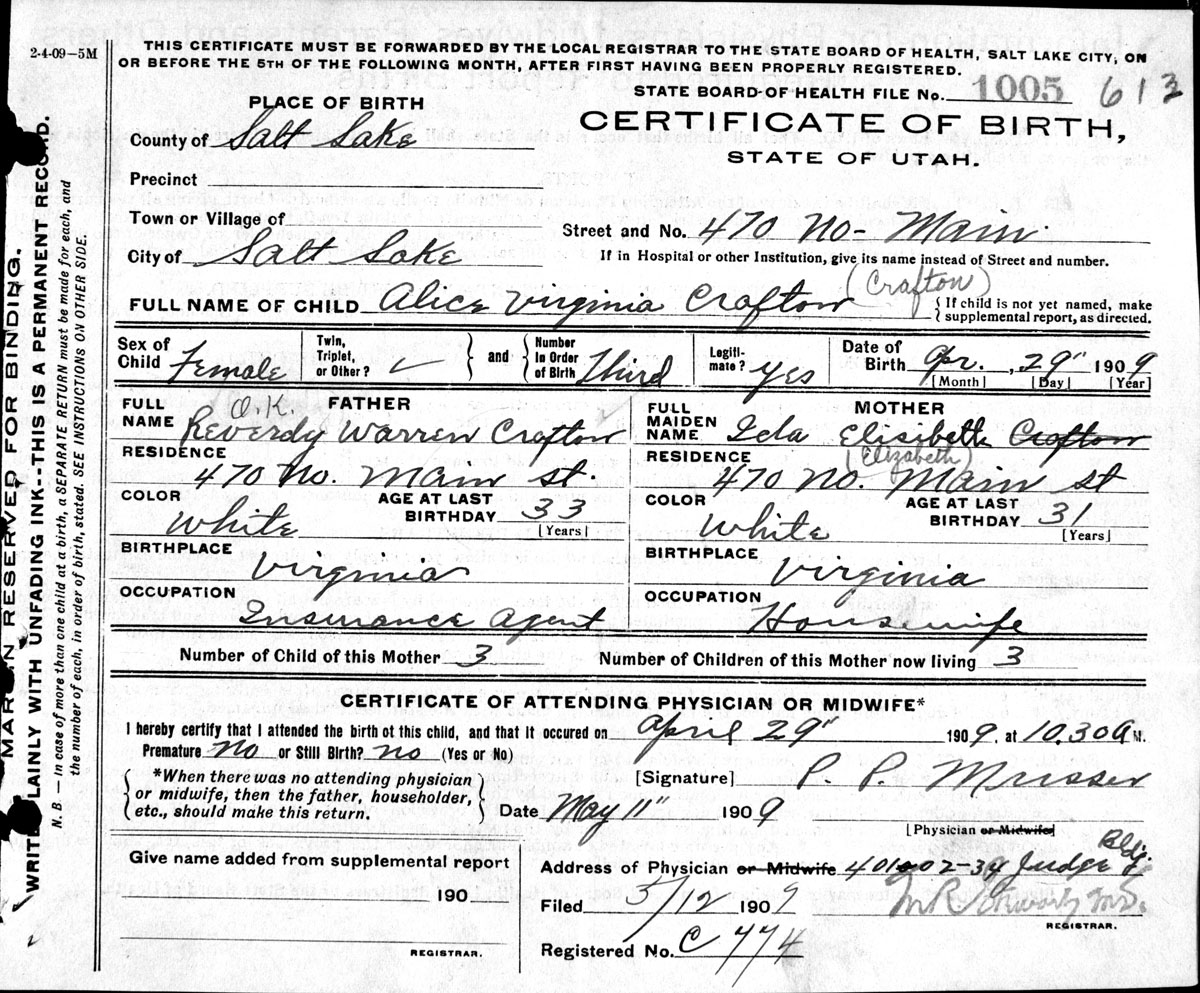 2-4-09-5M
THIS CERTIFICATE MUST BE FORWARDED BY THE LOCAL REGISTRAR TO THE STATE BOARD OF HEALTH, SALT LAKE CITY, ON
OR BEFORE THE 5TH OF THE FOLLOWING MONTH, AFTER FIRST HAVING BEEN PROPERLY REGISTERED.
STATE BOARD OF HEALTH FILE No. 1005 613
PLACE OF BIRTH
CERTIFICATE OF BIRTH,
STATE OF UTAH.
County of Salt Lake
Precinct
Town or Village of
Street and No. 470 No- Main
City of Salt Lake
If in Hospital or other Institution, give its name instead of Street and number.
FULL NAME OF CHILD Alice Virginia Crafton (Crafton)
{If child is not yet named, make
supplemental report, as directed.
Sex of Child Female
Twin, Triplet, or Other? ✓ } and { Number In Order of Birth Third
Legitimate? yes
Date of Birth Apr. 29" 1909
[Month] [Day] [Year]
FATHER
FULL NAME O.K. Reverdy Warren Crafton
RESIDENCE
470 No. Main st.
COLOR White
AGE AT LAST BIRTHDAY 33
[Years]
BIRTHPLACE
Virginia
OCCUPATION
Insurance Agent
MOTHER
FULL MAIDEN NAME Ida Elisibeth Crafton
(Elizabeth)
RESIDENCE
470 No. Main st
COLOR White
AGE AT LAST BIRTHDAY 31
[Years]
BIRTHPLACE
Virginia
OCCUPATION
Housewife
Number of Child of this Mother 3 Number of Children of this Mother now living 3
CERTIFICATE OF ATTENDING PHYSICIAN OR MIDWIFE*
I hereby certify that I attended the birth of this child, and that it occured on April 29" 1909, at 10.30 a M.
Premature No or Still Birth? no (Yes or No)
{ *When there was no attending physician
or midwife, then the father, householder,
etc., should make this return. }
[Signature] P. P. Musser
Date May 11" 1909
[Physician or Midwife]
Give name added from supplemental report
190
REGISTRAR.
Address of Physician or Midwife 401-02-34 Judge Bldg.
Filed 5/12 1909
REGISTRAR.
Registered No. C 774
MARGIN RESERVED FOR BINDING.
WRITE PLAINLY WITH UNFADING INK--THIS IS A PERMANENT RECORD.
N. B. — In case of more than one child at a birth, a SEPARATE RETURN must be made for each, and
the number of each, in order of birth, stated. SEE INSTRUCTIONS ON OTHER SIDE.